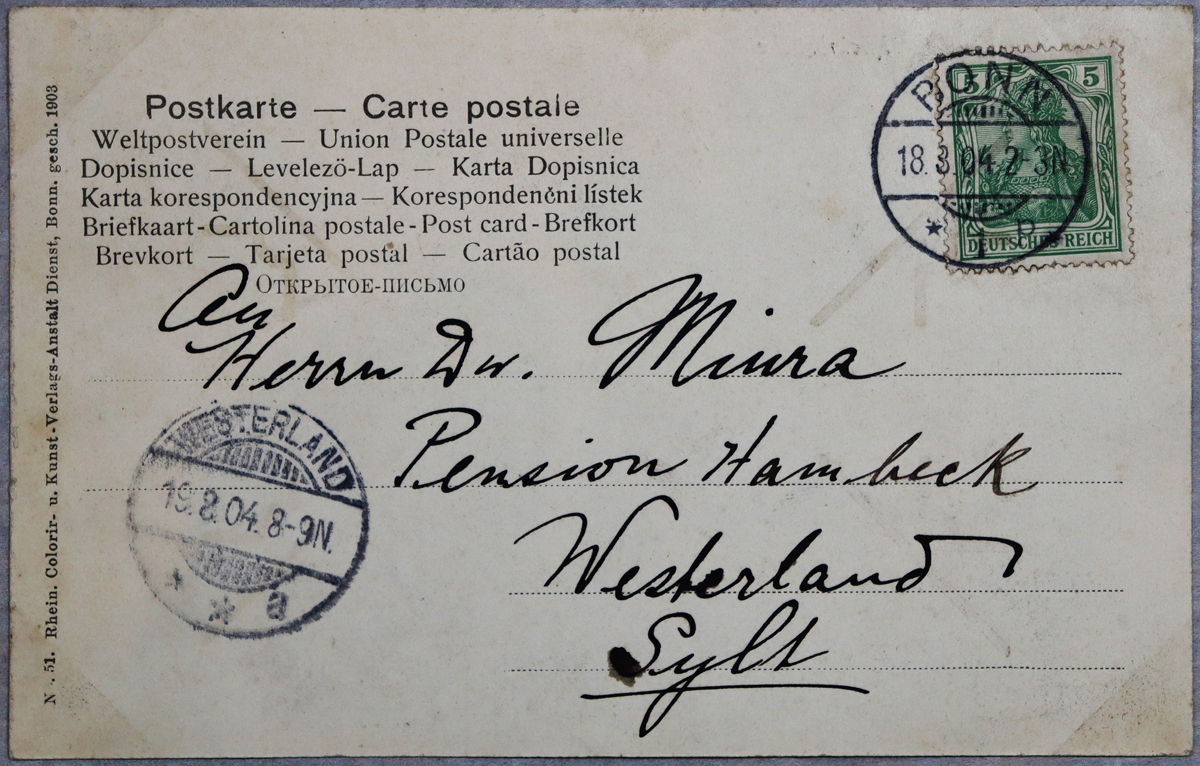 Postkarte — Carte postale
Weltpostverein — Union Postale universelle
Dopisnice — Levelezö-Lap — Karta Dopisnica
Karta korespondencyjna — Korespondenčni lístek
Briefkaart - Cartolina postale - Post card - Brefkort
Brevkort — Tarjeta postal — Cartão postal
Открытое-письмо
BONN
18.8.04.2-3N
* 1 p
5 5
DEUTSCHES REICH
An
Herrn Dr. Miura
Pension Hambeck
Westerland
Sylt
WESTERLAND
19.8.04.8-9N.
* * a
N . 51. Rhein. Colorir- u. Kunst-Verlags-Anstalt Dienst, Bonn. gesch. 1903